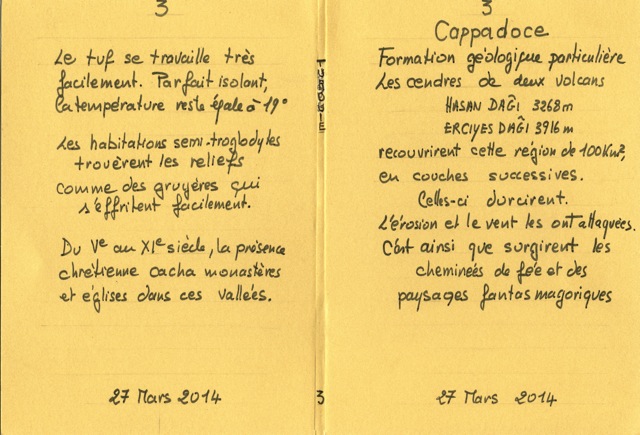 3
Le tuf se travaille très
facilement. Parfait isolant,
la température reste égale à 19°
Les habitations semi-troglodytes
trouèrent les reliefs
comme des gruyères qui
s'effritent facilement.
Du Ve au XIe siècle, la présence
chrétienne cacha monastères
et églises dans ces vallées.
27 Mars 2014
3
3
Cappadoce
Formation géologique particulière
Les cendres de deux volcans
HASAN DAĜI 3268m
ERCIYES DAĜI 3916m
recouvrirent cette région de 100Km²,
en couches successives.
Celles-ci durcirent.
L'érosion et le vent les ont attaquées.
C'est ainsi que surgirent les
cheminées de fée et des
paysages fantasmagoriques
27 Mars 2014